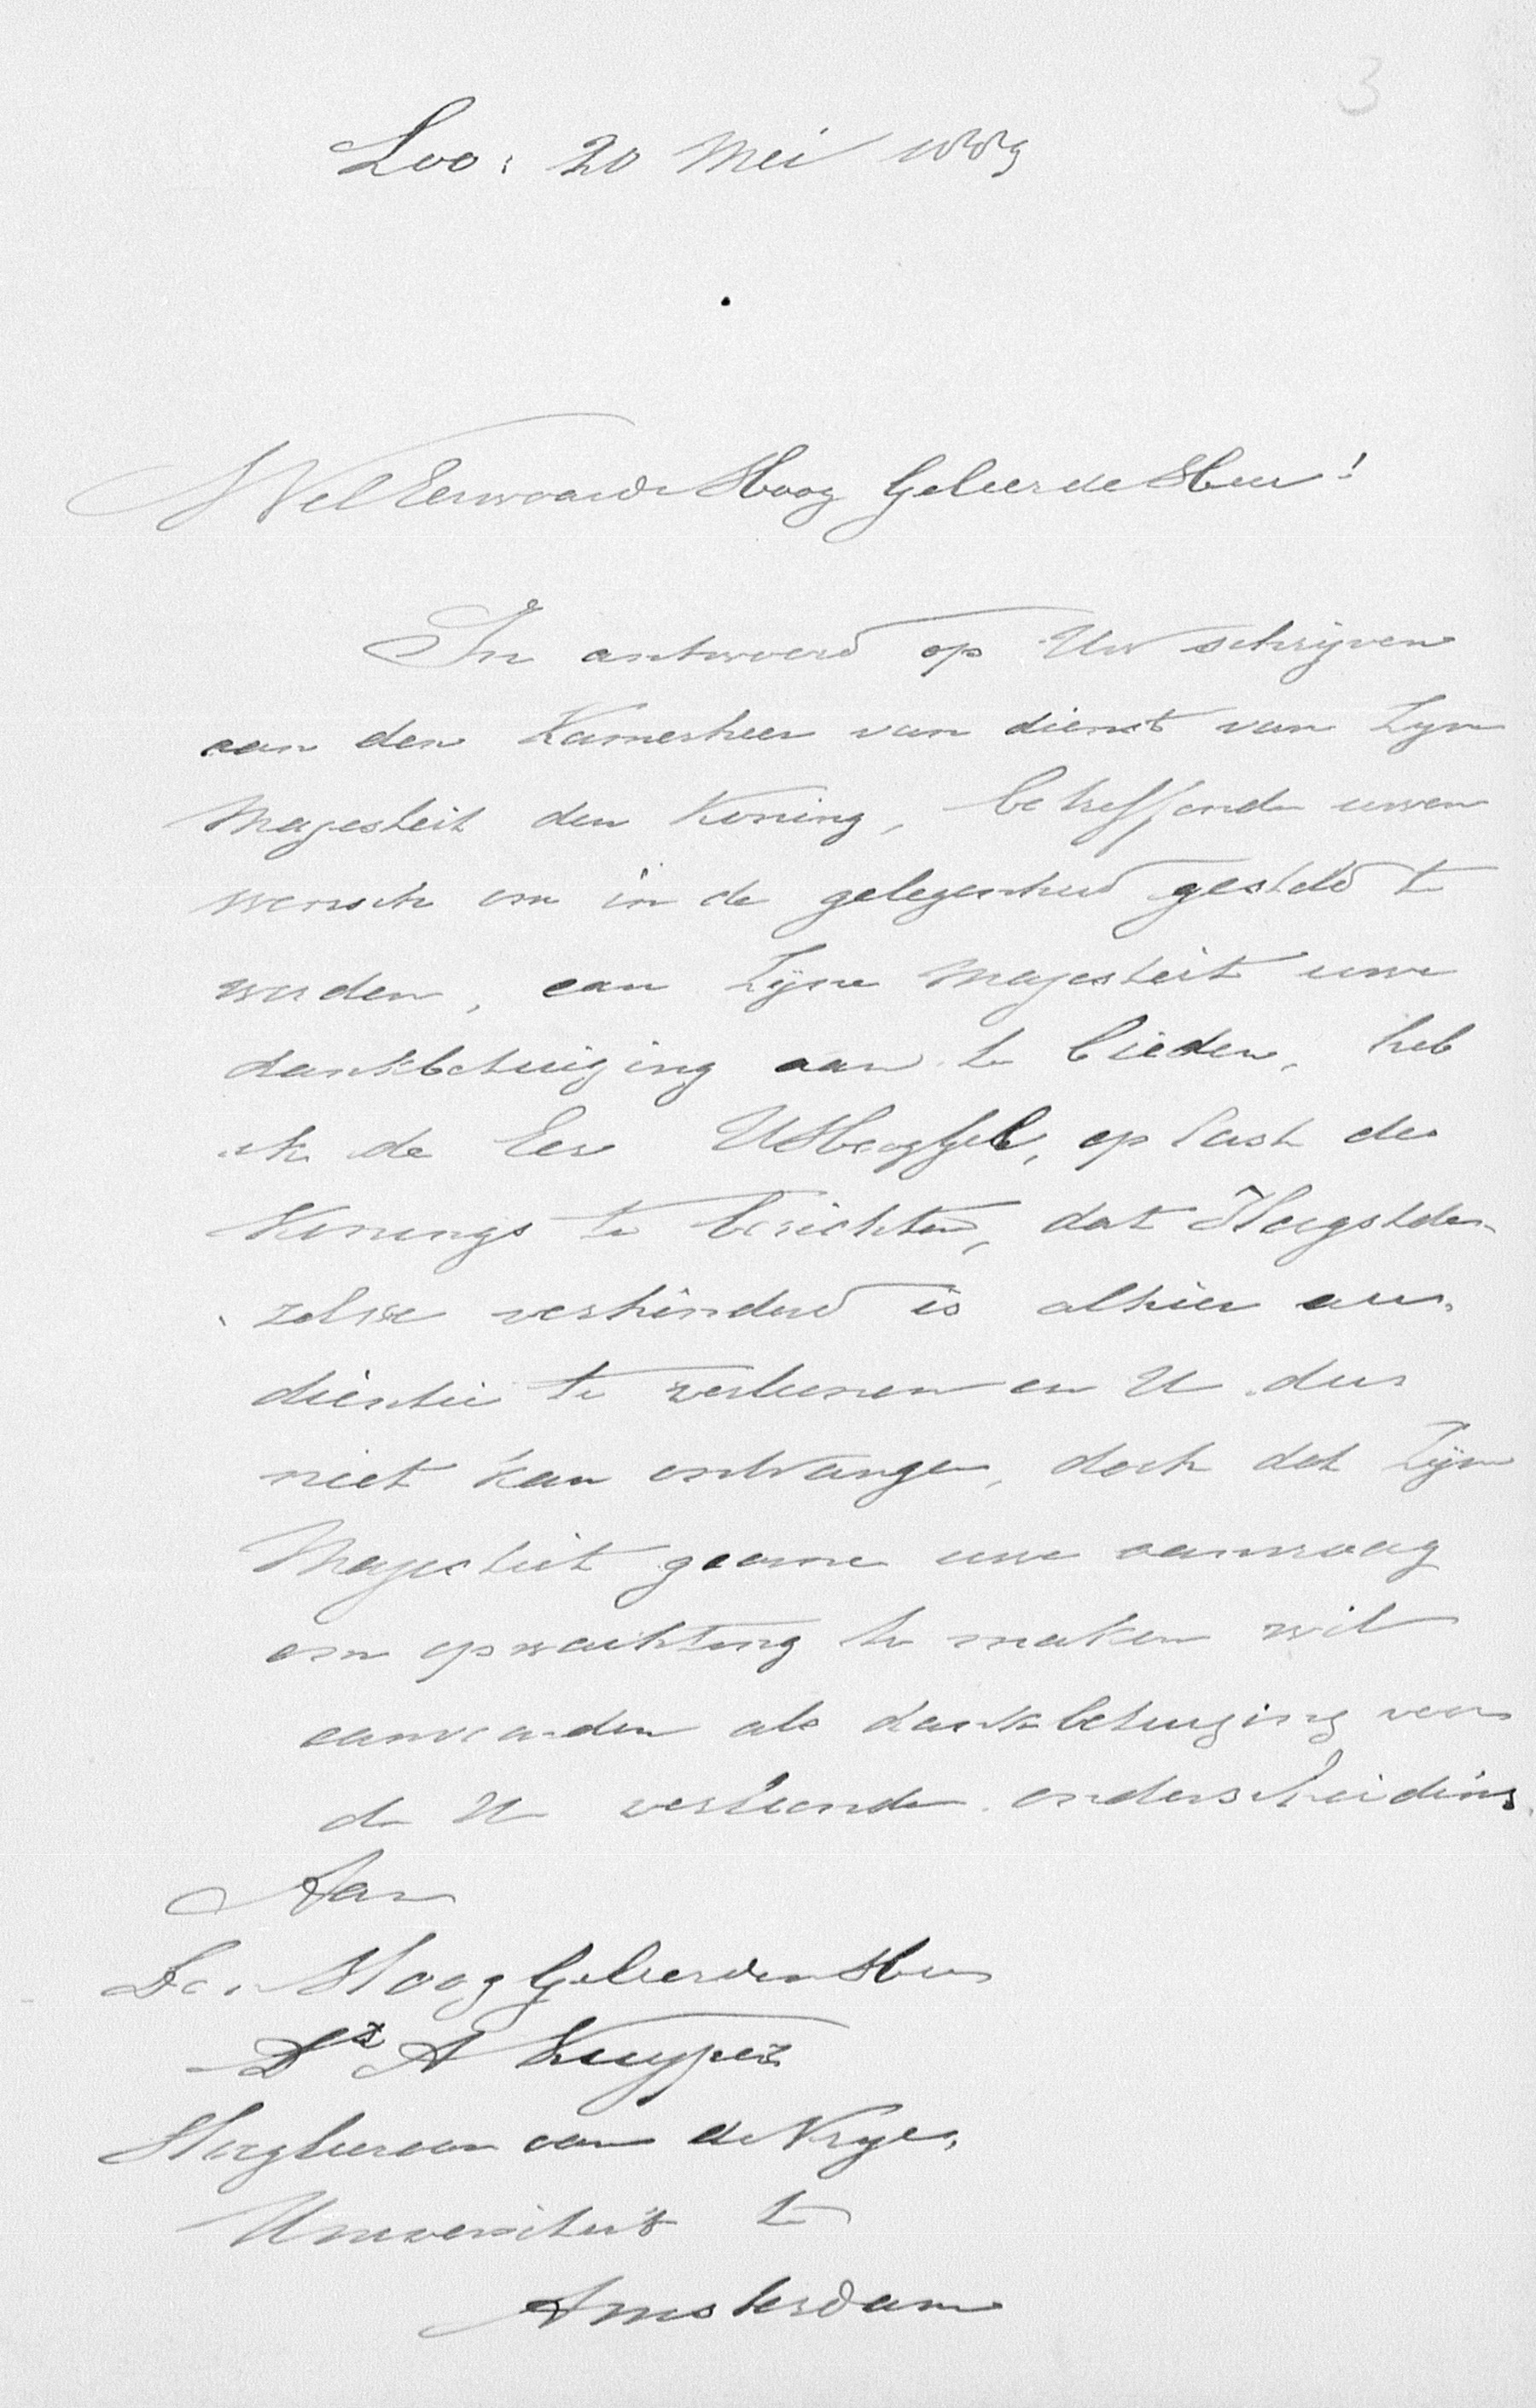 3
Loo, 20 Mei 1889
WelEerwaarde Hoog Geleerde Heer!
In antwoord op Uw schrijven
aan den Kamerheer van dienst van Zijn
Majesteit den Koning, betreffende uwen
wensch om in de gelegenheid gesteld te
worden, aan Zijne Majesteit uwe
dankbetuiging aan te bieden, heb
ik de Eer UHoogGel, op last des
Konings te berichten, dat Hoogstde-
zelve verhinderd is alhier au-
diëntie te verleenen en U dus
niet kan ontvangen, doch dat Zijne
Majesteit gaarne uwe aanvraag
om opwachting te maken wil
aanvaarden als dankbetuiging voor
de U verleende onderscheiding.
Aan
Den HoogGeleerden Heer
Dr A Kuyper
Hoogleeraar aan de Vrije
Universiteit te
Amsterdam